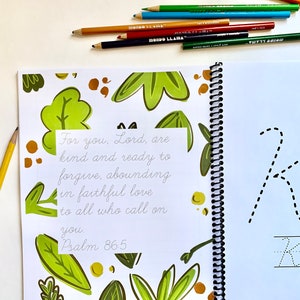 For you, Lord, are
kind and ready to
forgive, abounding
in faithful love
to all who call on
you.
Psalm 86:5
K
k